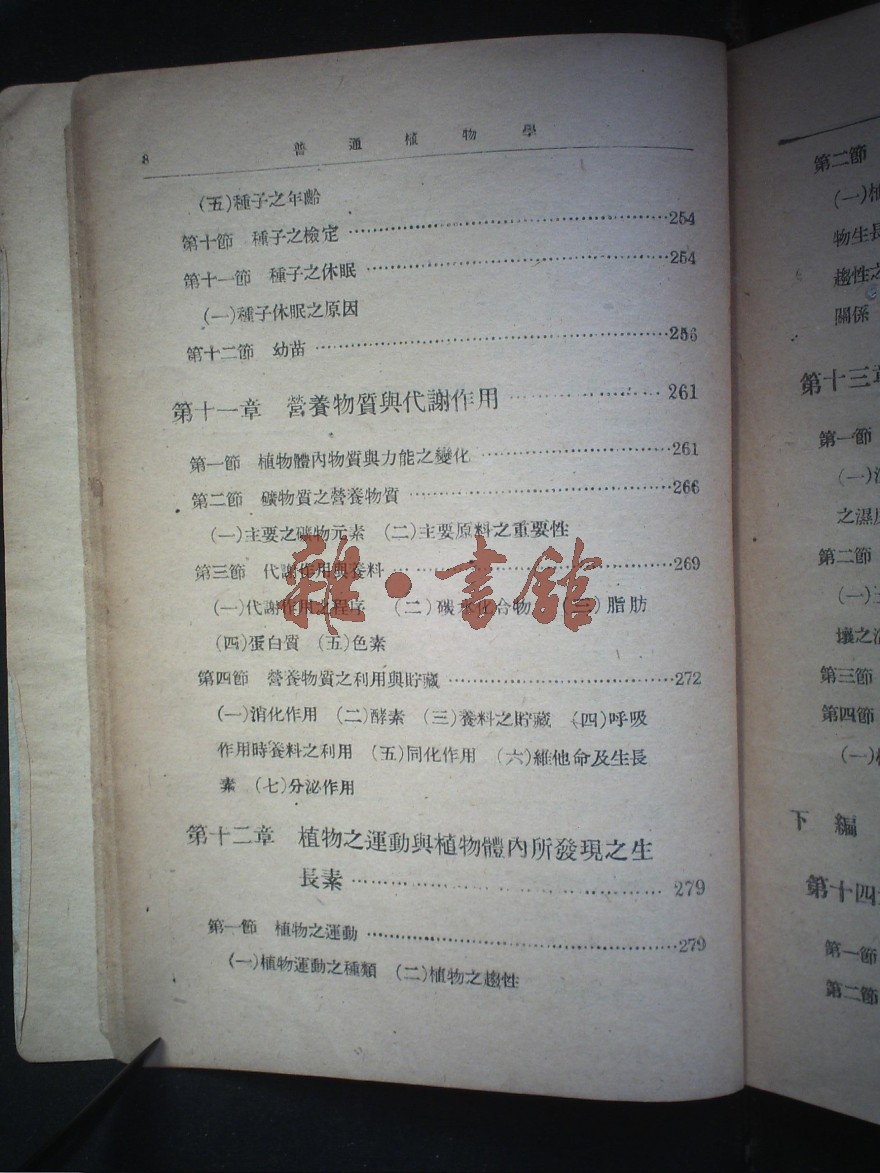 8 普通植物學
(五)種子之年齡
第十節 種子之檢定……254
第十一節 種子之休眠……254
(一)種子休眠之原因
第十二節 幼苗……256
第十一章 營養物質與代謝作用……261
第一節 植物體內物質與力能之變化……261
第二節 礦物質之營養物質……266
(一)主要之礦物元素 (二)主要原料之重要性
第三節 代謝作用與養料……269
(一)代謝作用之程序 (二)碳水化合物 (三)脂肪
(四)蛋白質 (五)色素
第四節 營養物質之利用與貯藏……272
(一)消化作用 (二)酵素 (三)養料之貯藏 (四)呼吸
作用時養料之利用 (五)同化作用 (六)維他命及生長
素 (七)分泌作用
第十二章 植物之運動與植物體內所發現之生
長素……279
第一節 植物之運動……279
(一)植物運動之種類 (二)植物之趨性
雜·書館
第二節
(一)植
物生長
趨性之
關係
第十三章
第一節
(一)
之濕
第二節
(一)
壤之
第三節
第四節
(一)
下編
第十四
第一節
第二節